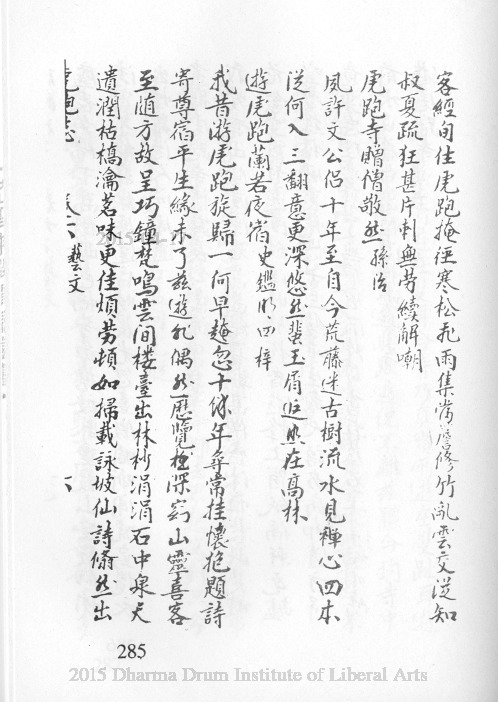 客經旬住虎跑掩徑寒松飛雨集當簷修竹亂雲交從知
叔夏疏狂甚片刺無勞續解嘲
虎跑寺贈僧敬然 孫治
夙許文公侶十年至自今荒藤迷古樹流水見禪心四本
從何入三翻意更深悠然蜚玉屑返照在高林
遊虎跑蘭若夜宿 史鑑明 四梓
我昔游虎跑旋歸一何早趣忽十餘年尋常挂懷抱題詩
寄尊宿平生緣未了茲遊孔偶然歷覽極深窈山靈喜客
至随方故呈巧鐘梵鳴雲间楼臺出林杪涓涓石中泉天
遺潤枯槁瀹茗味更佳煩勞頓如掃載詠坡仙詩翛然出
虎跑志 卷六 藝文 六
285
2015 Dharma Drum Institute of Liberal Arts